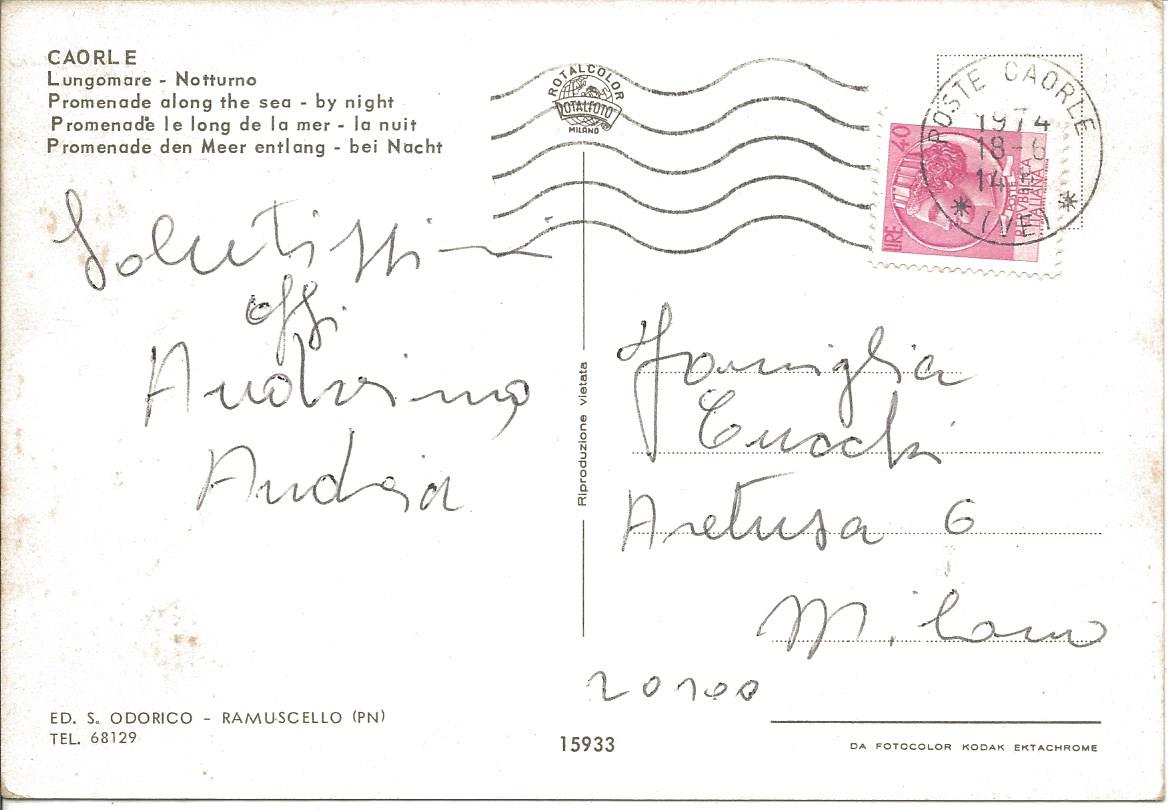 CAORLE
Lungomare - Notturno
Promenade along the sea - by night
Promenade le long de la mer - la nuit
Promenade den Meer entlang - bei Nacht
ROTALCOLOR
ROTALFOTO
MILANO
POSTE CAORLE
1974
18-6
14
* (VE) *
LIRE 40
POSTE
REPVBBLICA
ITALIANA
Salutissimi
aff.
Andreina
Andrea
Riproduzione vietata
Famiglia
Cucchi
Aretusa 6
Milano
20100
ED. S. ODORICO - RAMUSCELLO (PN)
TEL. 68129
15933
DA FOTOCOLOR KODAK EKTACHROME